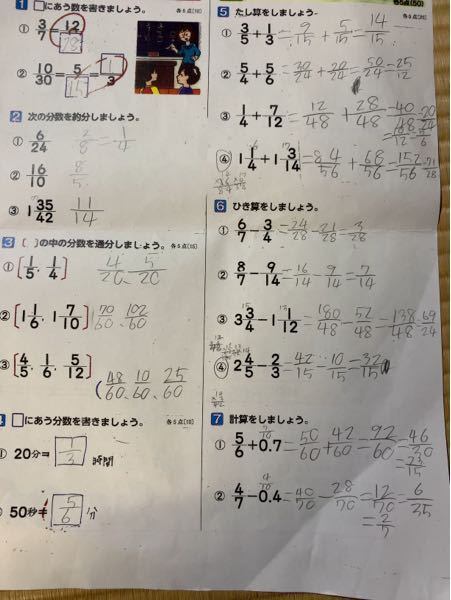 1 □にあう数を書きましょう。 各5点(10)
① 3/7 = 12/28
② 10/30 = 5/15 = 1/3
2 次の分数を約分しましょう。
① 6/24 2/8 = 1/4
② 16/10 8/5
③ 1 35/42 11/14
3 ( )の中の分数を通分しましょう。 各5点(15)
① [1/5, 1/4] 4/20、5/20
② [1 1/6, 1 7/10] 70/60、102/60
③ [4/5, 1/6, 5/12] (48/60、10/60、25/60
□にあう分数を書きましょう。 各5点(10)
① 20分= 1/3 時間
② 50秒= 5/6 分
各5点(50)
5 たし算をしましょう。
① 3/5 + 1/3 = 9/15 + 5/15 = 14/15
② 5/4 + 5/6 = 30/24 + 20/24 = 50/24 = 25/12
③ 1/4 + 7/12 = 12/48 + 28/48 = 40/48 = 20/24
④ 1 1/4 + 1 3/14 = 84/56 + 68/56 = 152/56
6 ひき算をしましょう。
① 6/7 − 3/4 = 24/28 − 21/28 = 3/28
② 8/7 − 9/14 = 16/14 − 9/14 = 7/14
③ 3 3/4 − 1 1/12 = 180/48 − 52/48 = 138/48 = 69/24
④ 2 4/5 − 2/3 = 42/15 − 10/15 = 32/15
7 計算をしましょう。
① 5/6 + 0.7 = 50/60 + 42/60 = 92/60 = 46/30
= 23/15
② 4/7 − 0.4 = 40/70 − 28/70 = 12/70 = 6/35
= 2/7